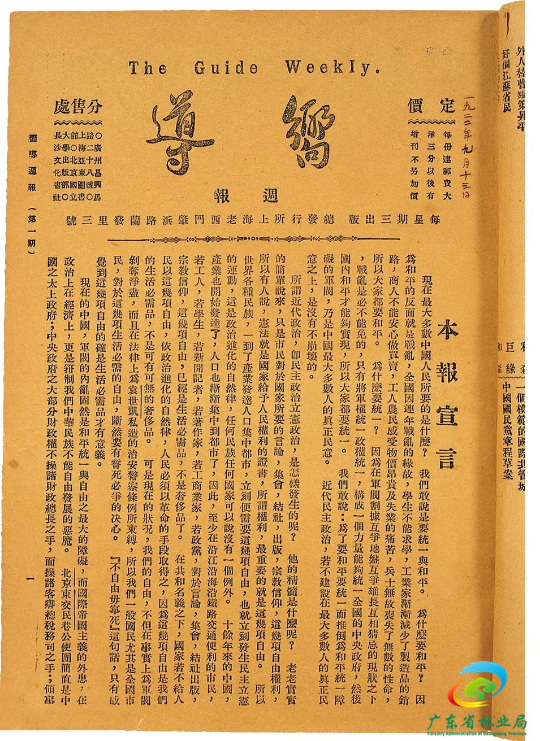 The Guide Weekly.
嚮導
週報
定價
每份連郵費大
洋三分以後有
增刊不另加價
一九二二年九月十三日
分售處
每星期三出版　總發行所上海老西門肇浜路蘭發里三號
嚮導週報（第一期）
本報宣言
現在最大多數中國人民所要的是什麼？　我們敢說是要統一與和平。　為什麼要和平？　因
為和平的反面就是戰亂，全國因連年戰亂的緣故，學生不能求學，工業家漸漸減少了製造品的銷
路，商人不能安心做買賣，工人農民感受物價昂貴及失業的痛苦，兵士無故喪失了無數的性命，
所以大家都要和平。　為什麼要統一？　因為在軍閥割據互爭地盤互爭雄長互相猜忌的現狀之下
，戰亂是必不能免的，只有將軍權統一政權統一，構成一個力量能夠統一全國的中央政府，然後
國內和平才能夠實現，所以大家都要統一。　我們敢說：為了要和平要統一而推倒為和平統一障
礙的軍閥，乃是中國最大多數人的真正民意。　近代民主政治，若不建設在最大多數人的真正民
意之上，是沒有不崩壞的。
所謂近代政治，即民主政治立憲政治，是怎樣發生的呢？　他的精髓是什麼呢？　老老實實
的簡單說來，只是市民對於國家所要的言論，集會，結社，出版，宗教信仰，這幾項自由權利，
所以有人說，憲法就是國家給予人民權利的證書，所謂權利，最重要的就是這幾項自由。　所以
世界各種民族，一到了產業發達人口集中都市，立刻便需要這幾項自由，也就立刻發生民主立憲
的運動，這是政治進化的自然律，任何民族任何國家可以說沒有一個例外。　十餘年來的中國，
產業也開始發達了，人口也漸漸集中到都市了，因此，至少在沿江沿海沿鐵路交通便利的市民，
若工人，若學生，若新聞記者，若著作家，若工商業家，若政黨，對於言論，集會，結社，出版，
宗教信仰，這幾項自由，已經是生活必需品，不是奢侈品了。　在共和名義之下，國家若不給人
民以這幾項自由，依政治進化的自然律，人民必須以革命的手段取得之，因為這幾項自由是我們
的生活必需品，不是可有可無的奢侈品。　可是現在的狀況，我們的自由，不但在事實上為軍閥
剝奪淨盡，而且在法律上為袁世凱私造的治安警察條例所束縛，所以我們一般國民尤其是全國市
民，對於這幾項生活必需的自由，斷然要有誓死必爭的決心。　『不自由毋寧死』這句話，只有感
覺到這幾項自由的確是生活必需品才有意義。
現在的中國，軍閥的內亂固然是和平統一與自由之最大的障礙，而國際帝國主義的外患，在
政治上在經濟上，更是箝制我們中華民族不能自由發展的惡魔。　北京東交民巷公使團簡直是中
國之太上政府；中央政府之大部分財政權不操諸財政總長之手，而操諸客卿總稅務司之手；領事
1
中國國民黨章程草案
广东省林业局
Forestry Administration of Guangdong Province